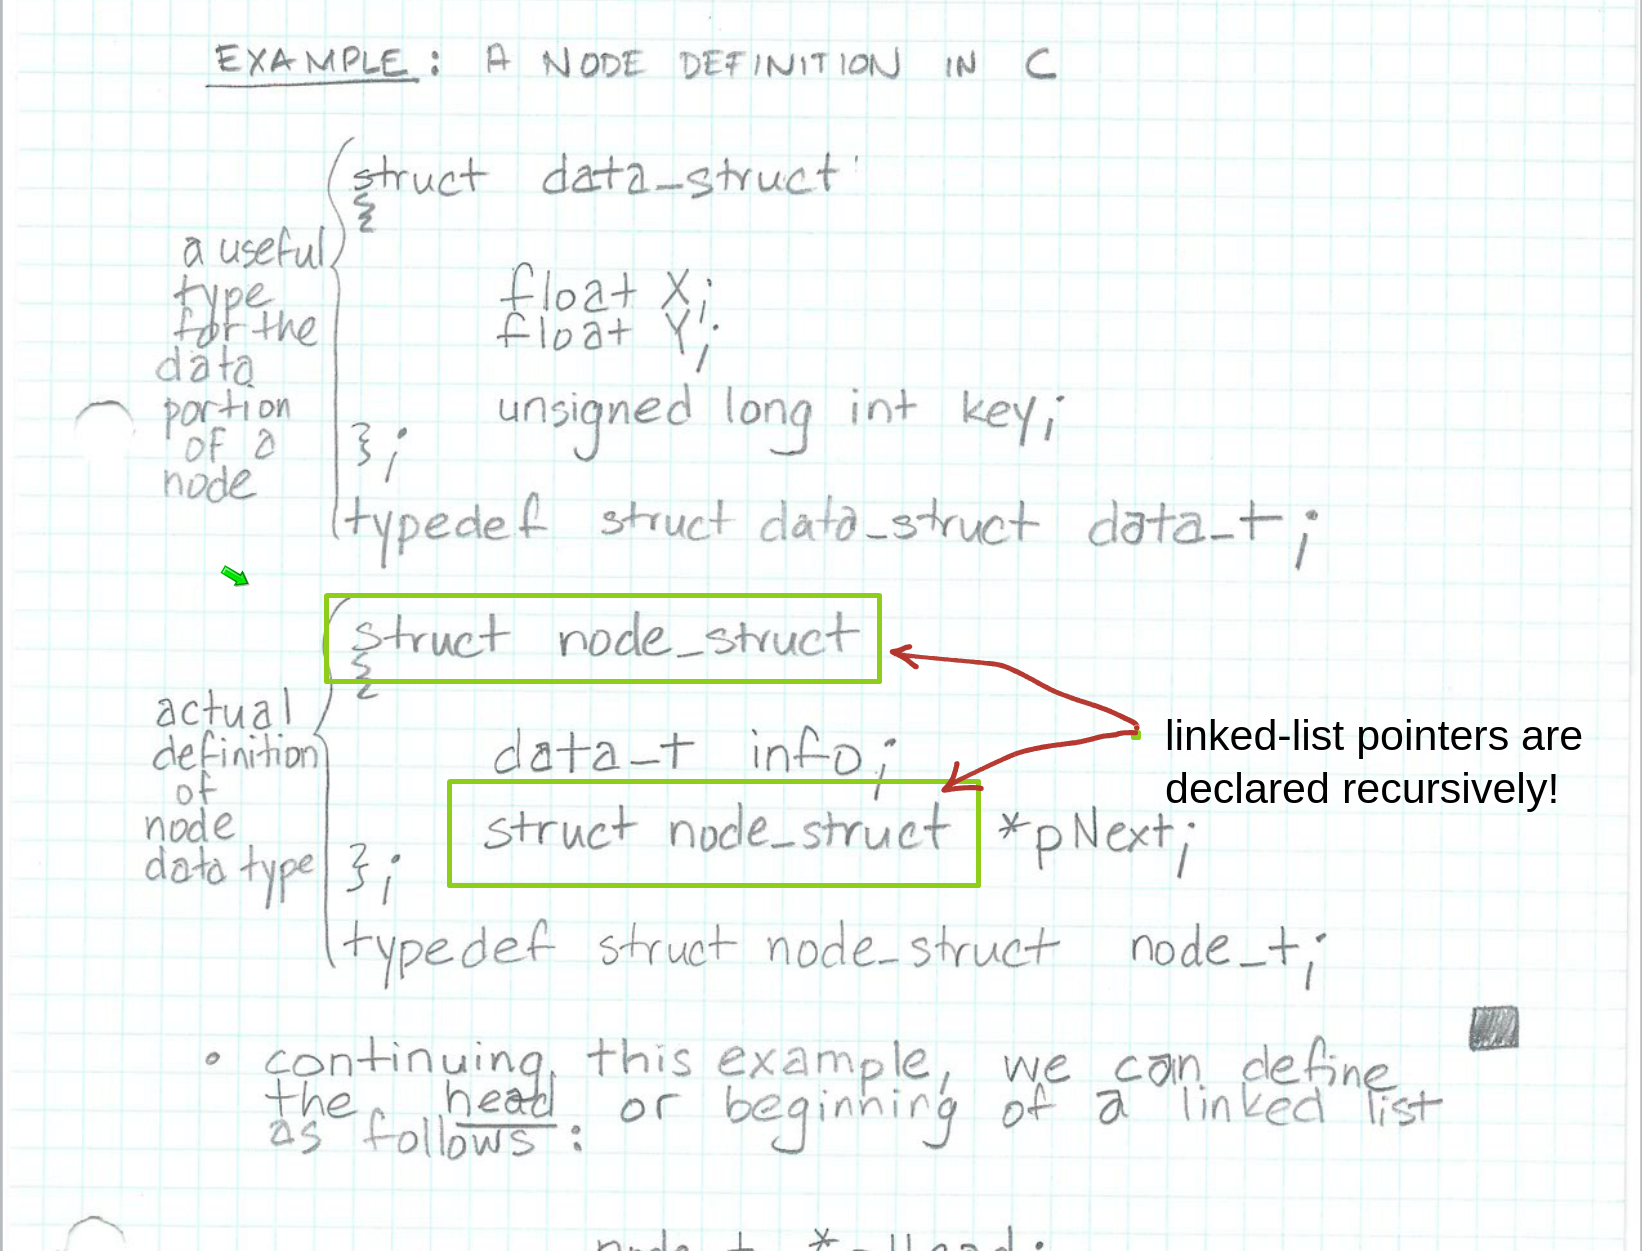 EXAMPLE: A NODE DEFINITION IN C
struct data_struct
{
a useful
type
for the
data
portion
of a
node
float X;
float Y;
unsigned long int key;
};
typedef struct data_struct data_t;
struct node_struct
{
actual
definition
of
node
data type
data_t info;
struct node_struct *pNext;
};
typedef struct node_struct node_t;
linked-list pointers are
declared recursively!
• continuing this example, we can define
the head or beginning of a linked list
as follows: